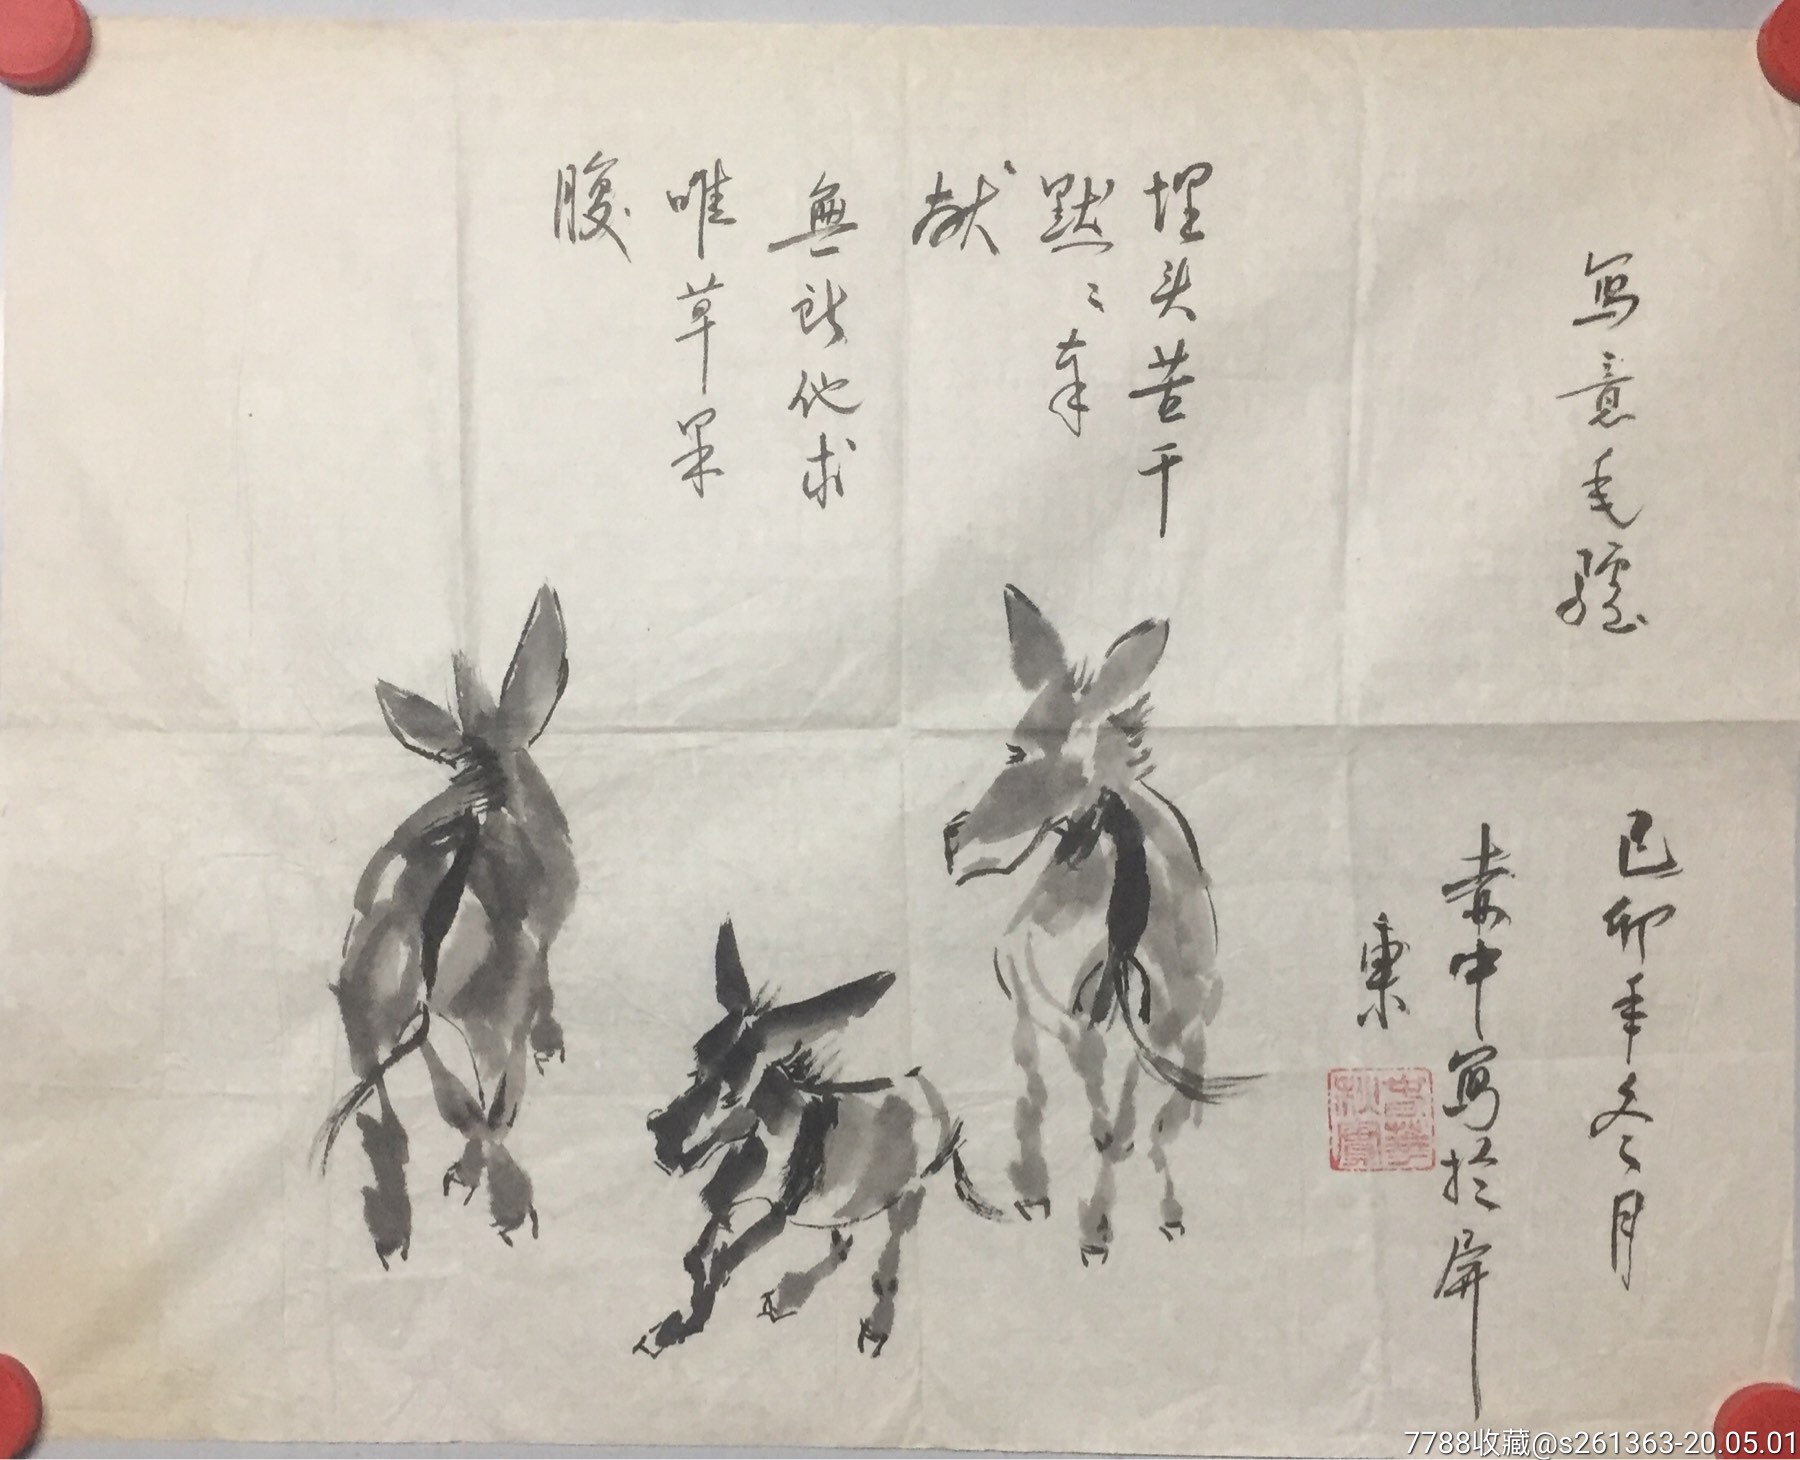 写意毛驴
埋头苦干
默々奉
献
無所他求
唯草果
腹
己卯年冬月
素中写於屏
東
7788收藏@s261363-20.05.01